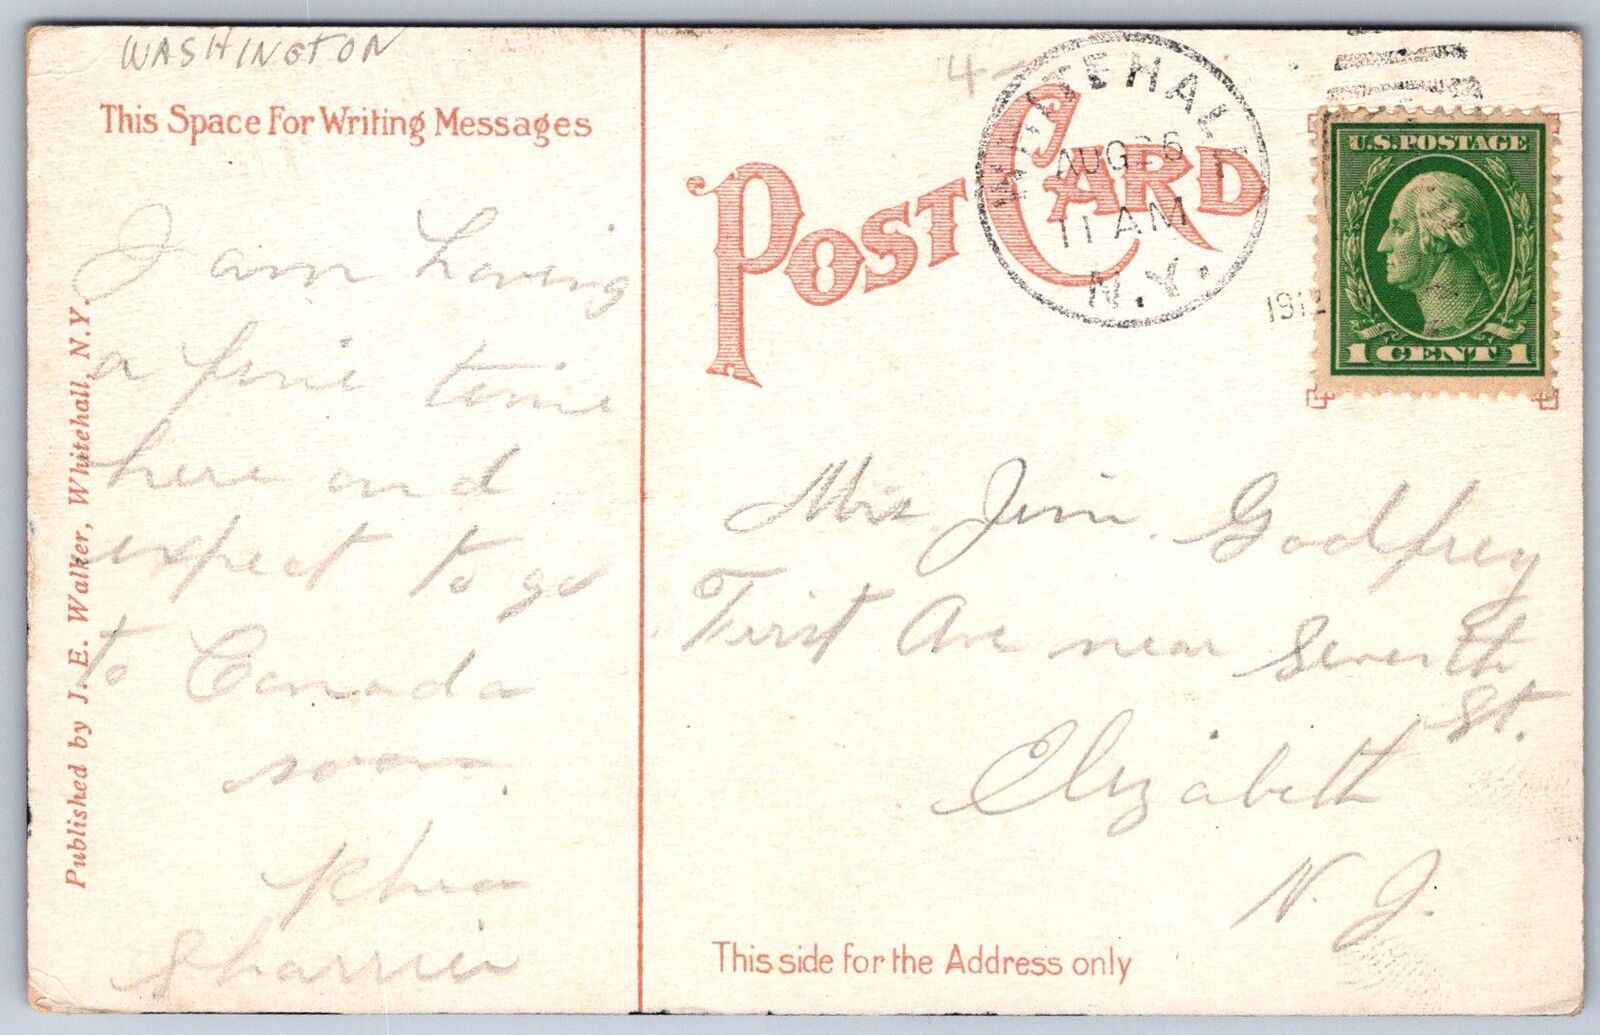 WASHINGTON
This Space For Writing Messages
I am having
a fine time
here and
expect to go
to Canada
soon
Rhea
Sharrier
Published by J. E. Walker, Whitehall, N.Y.
4-
POST CARD
WHITEHALL
AUG 26
11 AM
N.Y.
1912
U.S. POSTAGE
1 CENT 1
Mrs Jim Godfrey
First Ave near Seventh
St.
Elizabeth
N. J.
This side for the Address only